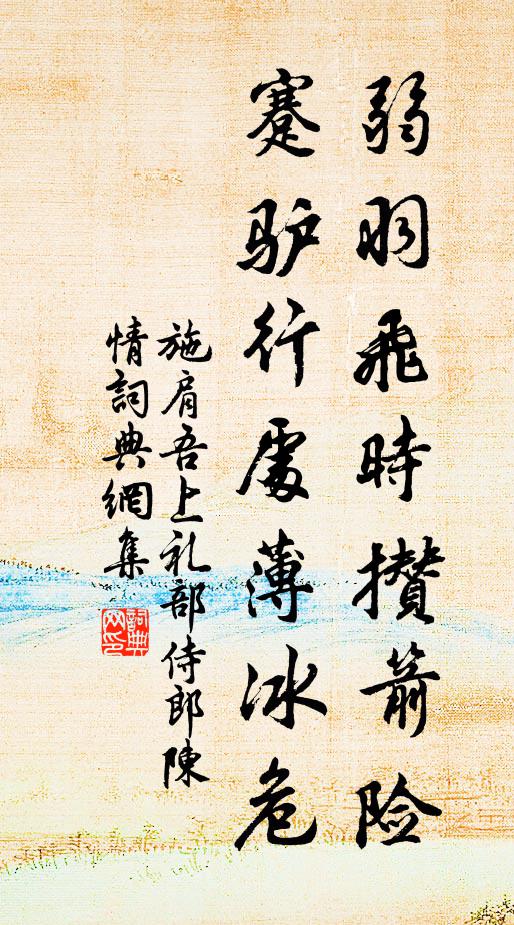 弱羽飛時攢箭险
蹇驴行處薄冰危
施肩吾上礼部侍郎陳
情詞典網集
詞典
网印